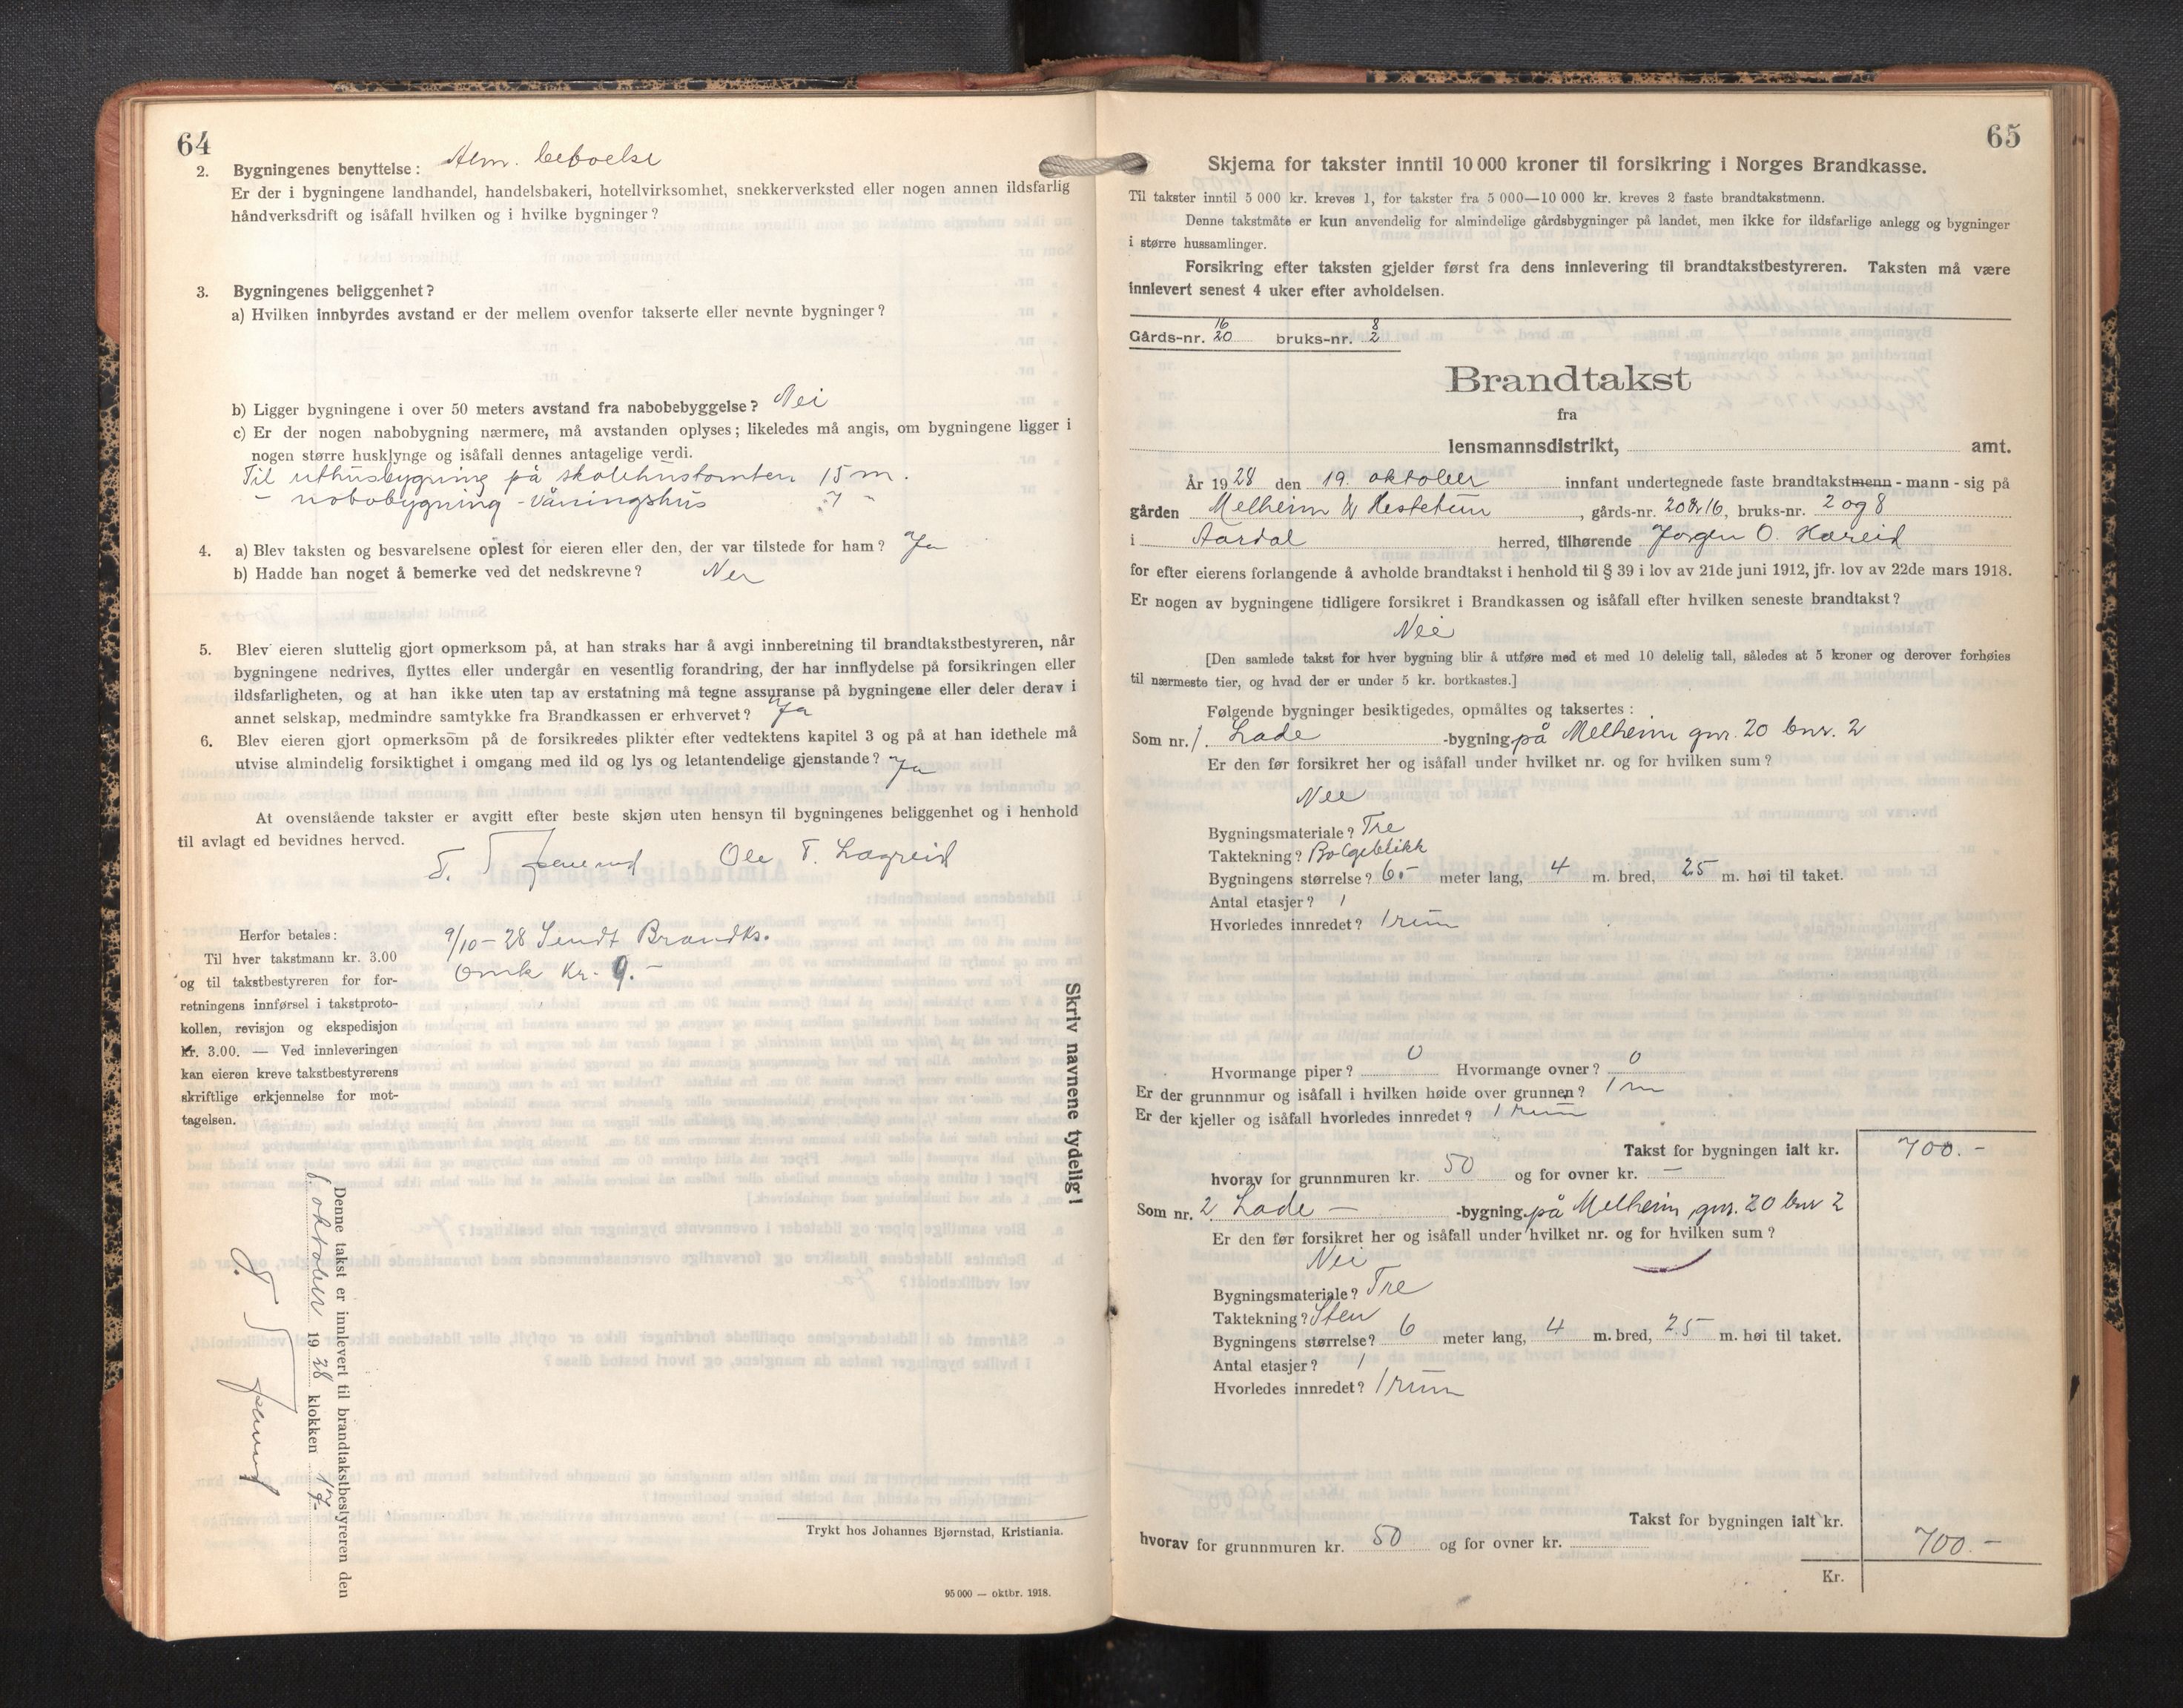 64
2. Bygningenes benyttelse: Alm. beboelse
Er der i bygningene landhandel, handelsbakeri, hotellvirksomhet, snekkerverksted eller nogen annen ildsfarlig
håndverksdrift og isåfall hvilken og i hvilke bygninger?
3. Bygningenes beliggenhet?
a) Hvilken innbyrdes avstand er der mellem ovenfor takserte eller nevnte bygninger?
b) Ligger bygningene i over 50 meters avstand fra nabobebyggelse? Nei
c) Er der nogen nabobygning nærmere, må avstanden oplyses; likeledes må angis, om bygningene ligger i
nogen større husklynge og isåfall dennes antagelige verdi.
Til uthusbygning på skolehustomten 15 m.
- nabobygning - våningshus 7 "
4. a) Blev taksten og besvarelsene oplest for eieren eller den, der var tilstede for ham? Ja
b) Hadde han noget å bemerke ved det nedskrevne? Nei
5. Blev eieren sluttelig gjort opmerksom på, at han straks har å avgi innberetning til brandtakstbestyreren, når
bygningene nedrives, flyttes eller undergår en vesentlig forandring, der har innflydelse på forsikringen eller
ildsfarligheten, og at han ikke uten tap av erstatning må tegne assuranse på bygningene eller deler derav i
annet selskap, medmindre samtykke fra Brandkassen er erhvervet? Ja
6. Blev eieren gjort opmerksom på de forsikredes plikter efter vedtektens kapitel 3 og på at han idethele må
utvise almindelig forsiktighet i omgang med ild og lys og letantendelige gjenstande? Ja
At ovenstående takster er avgitt efter beste skjøn uten hensyn til bygningenes beliggenhet og i henhold
til avlagt ed bevidnes herved.
Ole T. Lægreid
Herfor betales:
Til hver takstmann kr. 3.00
og til takstbestyreren for for-
retningens innførsel i takstproto-
kollen, revisjon og ekspedisjon
kr. 3.00. — Ved innleveringen
kan eieren kreve takstbestyrerens
skriftlige erkjennelse for mot-
tagelsen.
9/10-28 Sendt Brandks.
Omk Kr. 9.-
Skriv navnene tydelig!
Denne takst er innlevert til brandtakstbestyreren den
6 oktober 1928 klokken 17
Trykt hos Johannes Bjørnstad, Kristiania.
95 000 — oktbr. 1918.
65
Skjema for takster inntil 10 000 kroner til forsikring i Norges Brandkasse.
Til takster inntil 5 000 kr. kreves 1, for takster fra 5 000—10 000 kr. kreves 2 faste brandtakstmenn.
Denne takstmåte er kun anvendelig for almindelige gårdsbygninger på landet, men ikke for ildsfarlige anlegg og bygninger
i større hussamlinger.
Forsikring efter taksten gjelder først fra dens innlevering til brandtakstbestyreren. Taksten må være
innlevert senest 4 uker efter avholdelsen.
16 8
Gårds-nr. 20 bruks-nr. 2
Brandtakst
fra
lensmannsdistrikt, amt.
År 1928 den 19. oktober innfant undertegnede faste brandtakstmenn - mann - sig på
gården Melheim & Hestetun, gårds-nr. 20 & 16, bruks-nr. 2 og 8
i Aardal herred, tilhørende Jørgen O. Hæreid
for efter eierens forlangende å avholde brandtakst i henhold til § 39 i lov av 21de juni 1912, jfr. lov av 22de mars 1918.
Er nogen av bygningene tidligere forsikret i Brandkassen og isåfall efter hvilken seneste brandtakst?
Nei
[Den samlede takst for hver bygning blir å utføre med et med 10 delelig tall, således at 5 kroner og derover forhøies
til nærmeste tier, og hvad der er under 5 kr. bortkastes.]
Følgende bygninger besiktigedes, opmåltes og taksertes:
Som nr. 1. Lade -bygning på Melheim gnr. 20 bnr. 2
Er den før forsikret her og isåfall under hvilket nr. og for hvilken sum?
Nei
Bygningsmateriale? Tre
Taktekning? Bølgeblikk
Bygningens størrelse? 6.- meter lang, 4 m. bred, 25 m. høi til taket.
Antal etasjer? 1
Hvorledes innredet? 1 rum
Hvormange piper? 0 Hvormange ovner? 0
Er der grunnmur og isåfall i hvilken høide over grunnen? 1 m
Er der kjeller og isåfall hvorledes innredet? 1 rum
Takst for bygningen ialt kr. 700.-
hvorav for grunnmuren kr. 50 og for ovner kr. —
Som nr. 2 Lade — -bygning på Melheim gnr. 20 bnr 2
Er den før forsikret her og isåfall under hvilket nr. og for hvilken sum?
Nei
Bygningsmateriale? Tre
Taktekning? Sten
Bygningens størrelse? 6 meter lang, 4 m. bred, 25 m. høi til taket.
Antal etasjer? 1
Hvorledes innredet? 1 rum
Takst for bygningen ialt kr.
hvorav for grunnmuren kr. 50 og for ovner kr. 700.-
Kr.